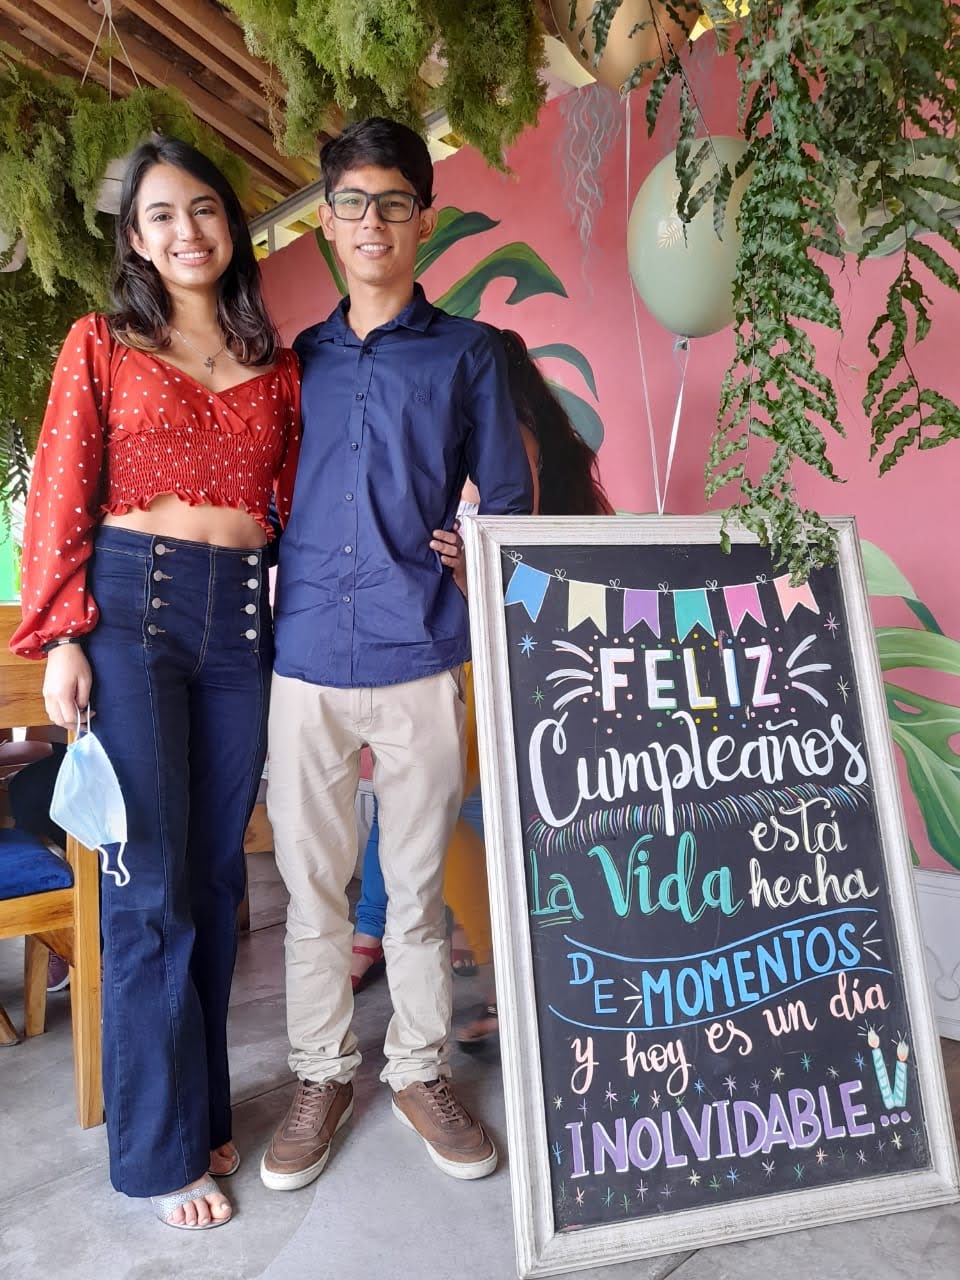 FELIZ
Cumpleaños
La Vida está
hecha
DE MOMENTOS
y hoy es un día
INOLVIDABLE...